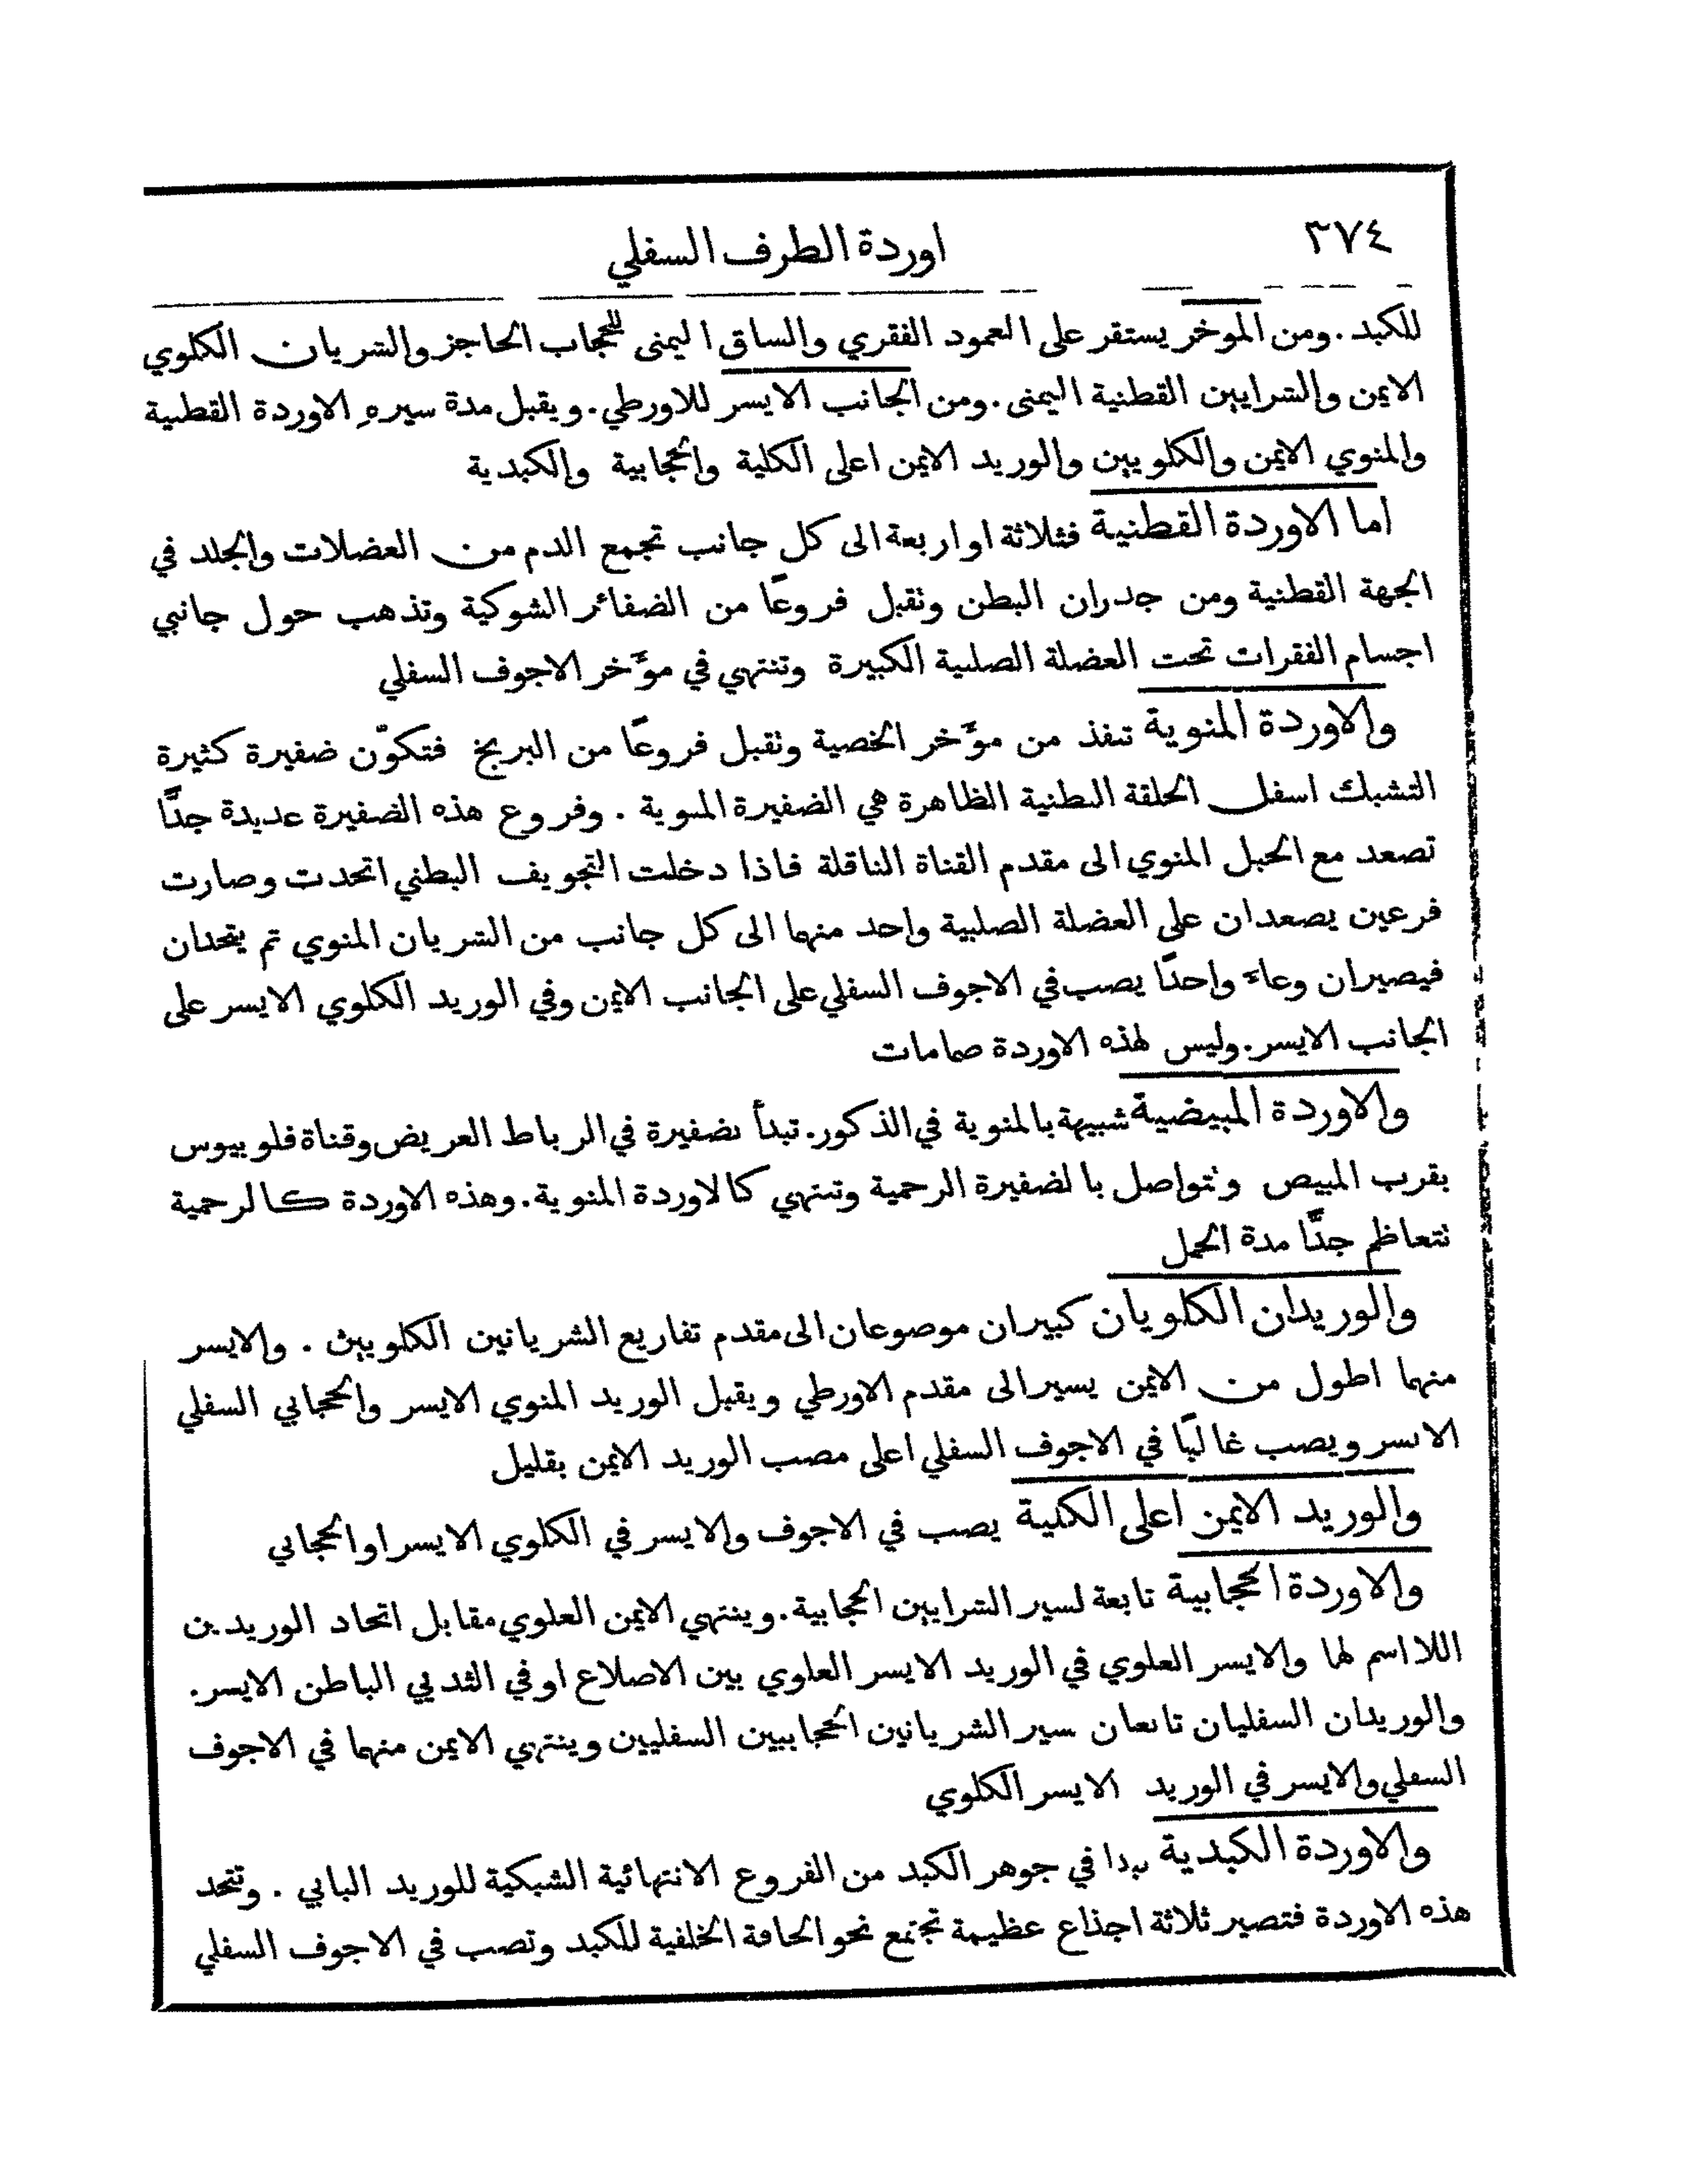 ٣٧٤
اوردة الطرف السفلي
للكبد. ومن الموخر يستقر على العمود الفقري والساق اليمنى للحجاب الحاجز والشريان الكلوي
الايمن والشرايين القطنية اليمنى. ومن الجانب الايسر للاورطي. ويقبل مدة سيرهِ الاوردة القطنية
والمنوي الايمن والكلويين والوريد الايمن اعلى الكلية والحجابية والكبدية
اما الاوردة القطنية فثلاثة او اربعة الى كل جانب تجمع الدم من العضلات والجلد في
الجهة القطنية ومن جدران البطن وتقبل فروعًا من الضفائر الشوكية وتذهب حول جانبي
اجسام الفقرات تحت العضلة الصلبية الكبيرة وتنتهي في مؤَخر الاجوف السفلي
والاوردة المنوية تنفذ من مؤَخر الخصية وتقبل فروعًا من البربخ فتكوّن ضفيرة كثيرة
التشبك اسفل الحلقة البطنية الظاهرة هي الضفيرة المنوية. وفروع هذه الضفيرة عديدة جدًّا
تصعد مع الحبل المنوي الى مقدم القناة الناقلة فاذا دخلت التجويف البطني اتحدت وصارت
فرعين يصعدان على العضلة الصلبية واحد منهما الى كل جانب من الشريان المنوي ثم يتحدان
فيصيران وعاءً واحدًا يصب في الاجوف السفلي على الجانب الايمن وفي الوريد الكلوي الايسر على
الجانب الايسر. وليس لهذه الاوردة صمامات
والاوردة المبيضية شبيهة بالمنوية في الذكور. تبدأ بضفيرة في الرباط العريض وقناة فلوبيوس
بقرب المبيص وتتواصل بالضفيرة الرحمية وتنتهي كالاوردة المنوية. وهذه الاوردة كالرحمية
تتعاظم جدًّا مدة الحمل
والوريدان الكلويان كبيران موضوعان الى مقدم تفاريع الشريانين الكلويين. والايسر
منهما اطول من الايمن يسير الى مقدم الاورطي ويقبل الوريد المنوي الايسر والحجابي السفلي
الايسر ويصب غالبًا في الاجوف السفلي اعلى مصب الوريد الايمن بقليل
والوريد الايمن اعلى الكلية يصب في الاجوف والايسر في الكلوي الايسر او الحجابي
والاوردة الحجابية تابعة لسير الشرايين الحجابية. وينتهي الايمن العلوي مقابل اتحاد الوريدين
اللا اسم لها والايسر العلوي في الوريد الايسر العلوي بين الاضلاع او في الثديي الباطن الايسر.
والوريدان السفليان تابعان سير الشريانين الحجابيين السفليين وينتهي الايمن منهما في الاجوف
السفلي والايسر في الوريد الايسر الكلوي
والاوردة الكبدية تبدا في جوهر الكبد من الفروع الانتهائية الشبكية للوريد البابي. وتتحد
هذه الاوردة فتصير ثلاثة اجذاع عظيمة تجتمع نحو الحافة الخلفية للكبد وتصب في الاجوف السفلي